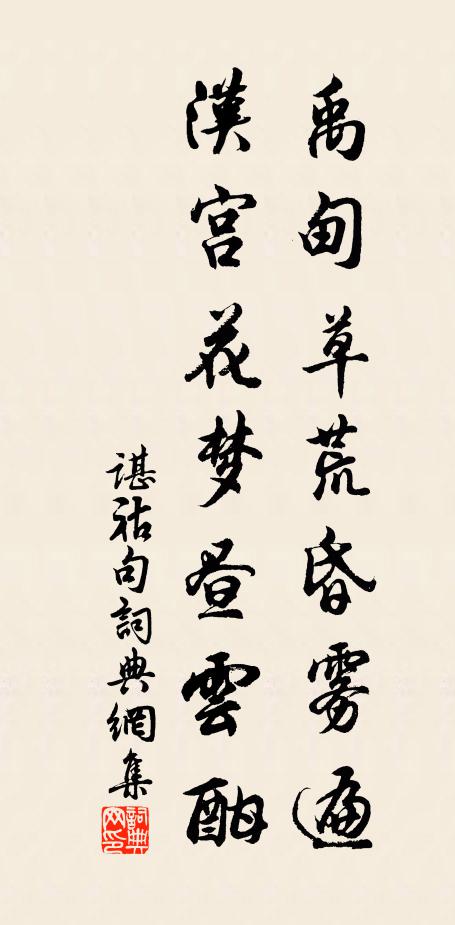 禹甸草荒昏雾遍
漢宫花梦昼雲酣
谌祜句詞典網集
詞典网印